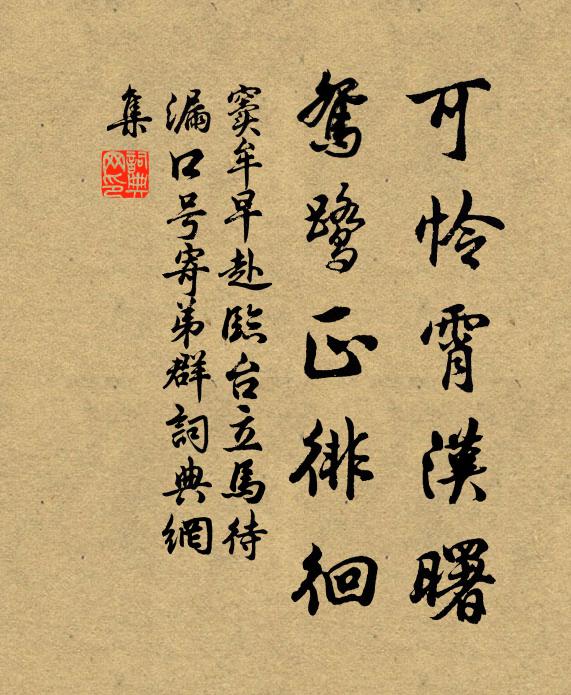 可怜霄汉曙
鸳鹭正徘徊
窦牟早赴临台立马待
漏口号寄弟群詞典網
集
詞典網印